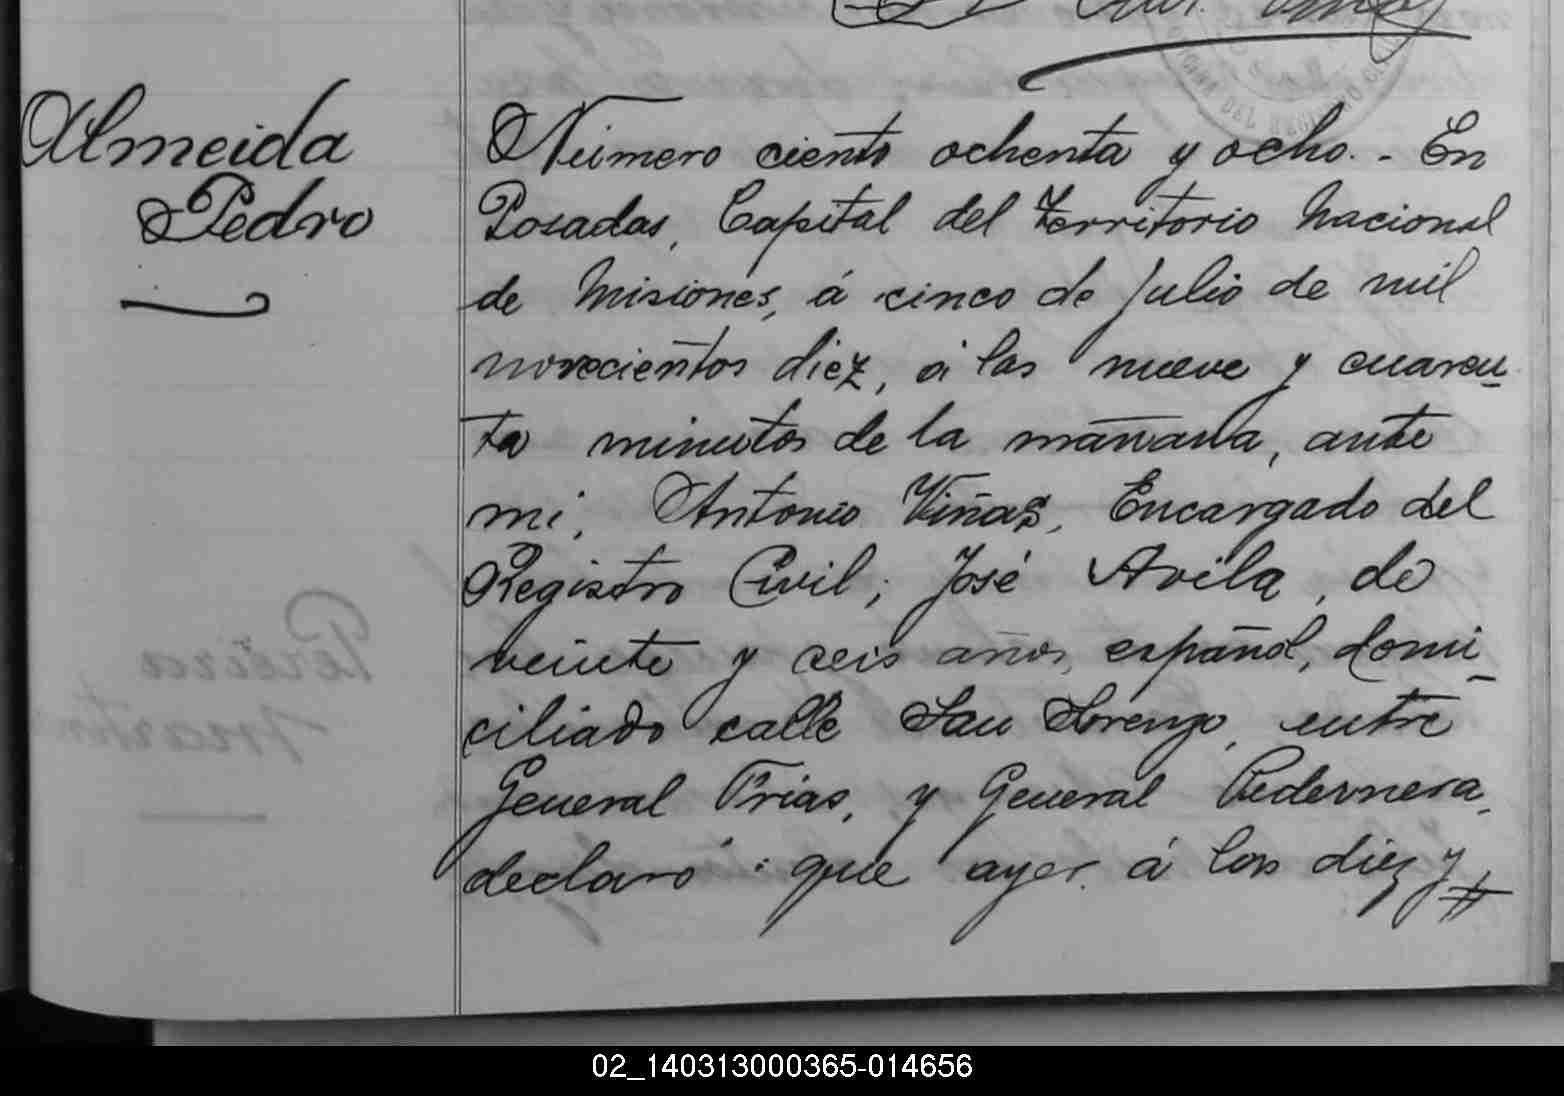 Almeida
Pedro
Número ciento ochenta y ocho. - En
Posadas, Capital del Territorio Nacional
de Misiones, á cinco de Julio de mil
novecientos diez, á las nueve y cuaren-
ta minutos de la mañana, ante
mi, Antonio Viñas, Encargado del
Registro Civil; José Avila, de
veinte y seis años, español, domi-
ciliado calle San Lorenzo, entre
General Frias, y General Pedernera,
declaró: que ayer á las diez y
02_140313000365-014656